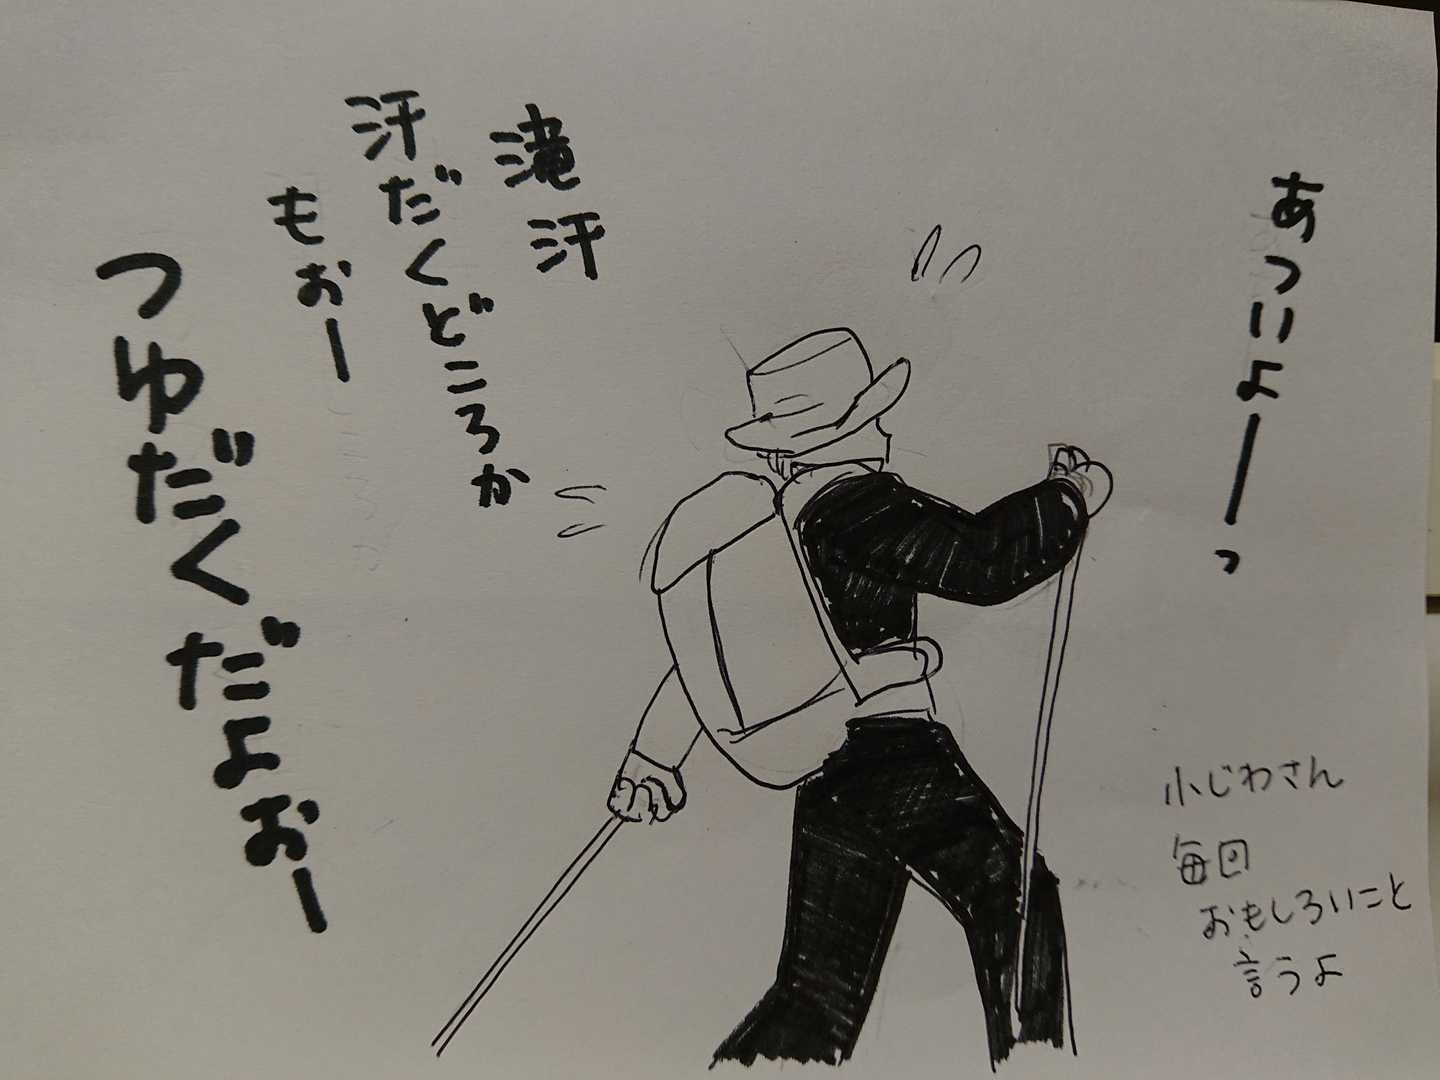 あついよーっ
滝汗
汗だくどころか
もぉー
つゆだくだよぉー
小じわさん
毎回
おもしろいこと
言うよ